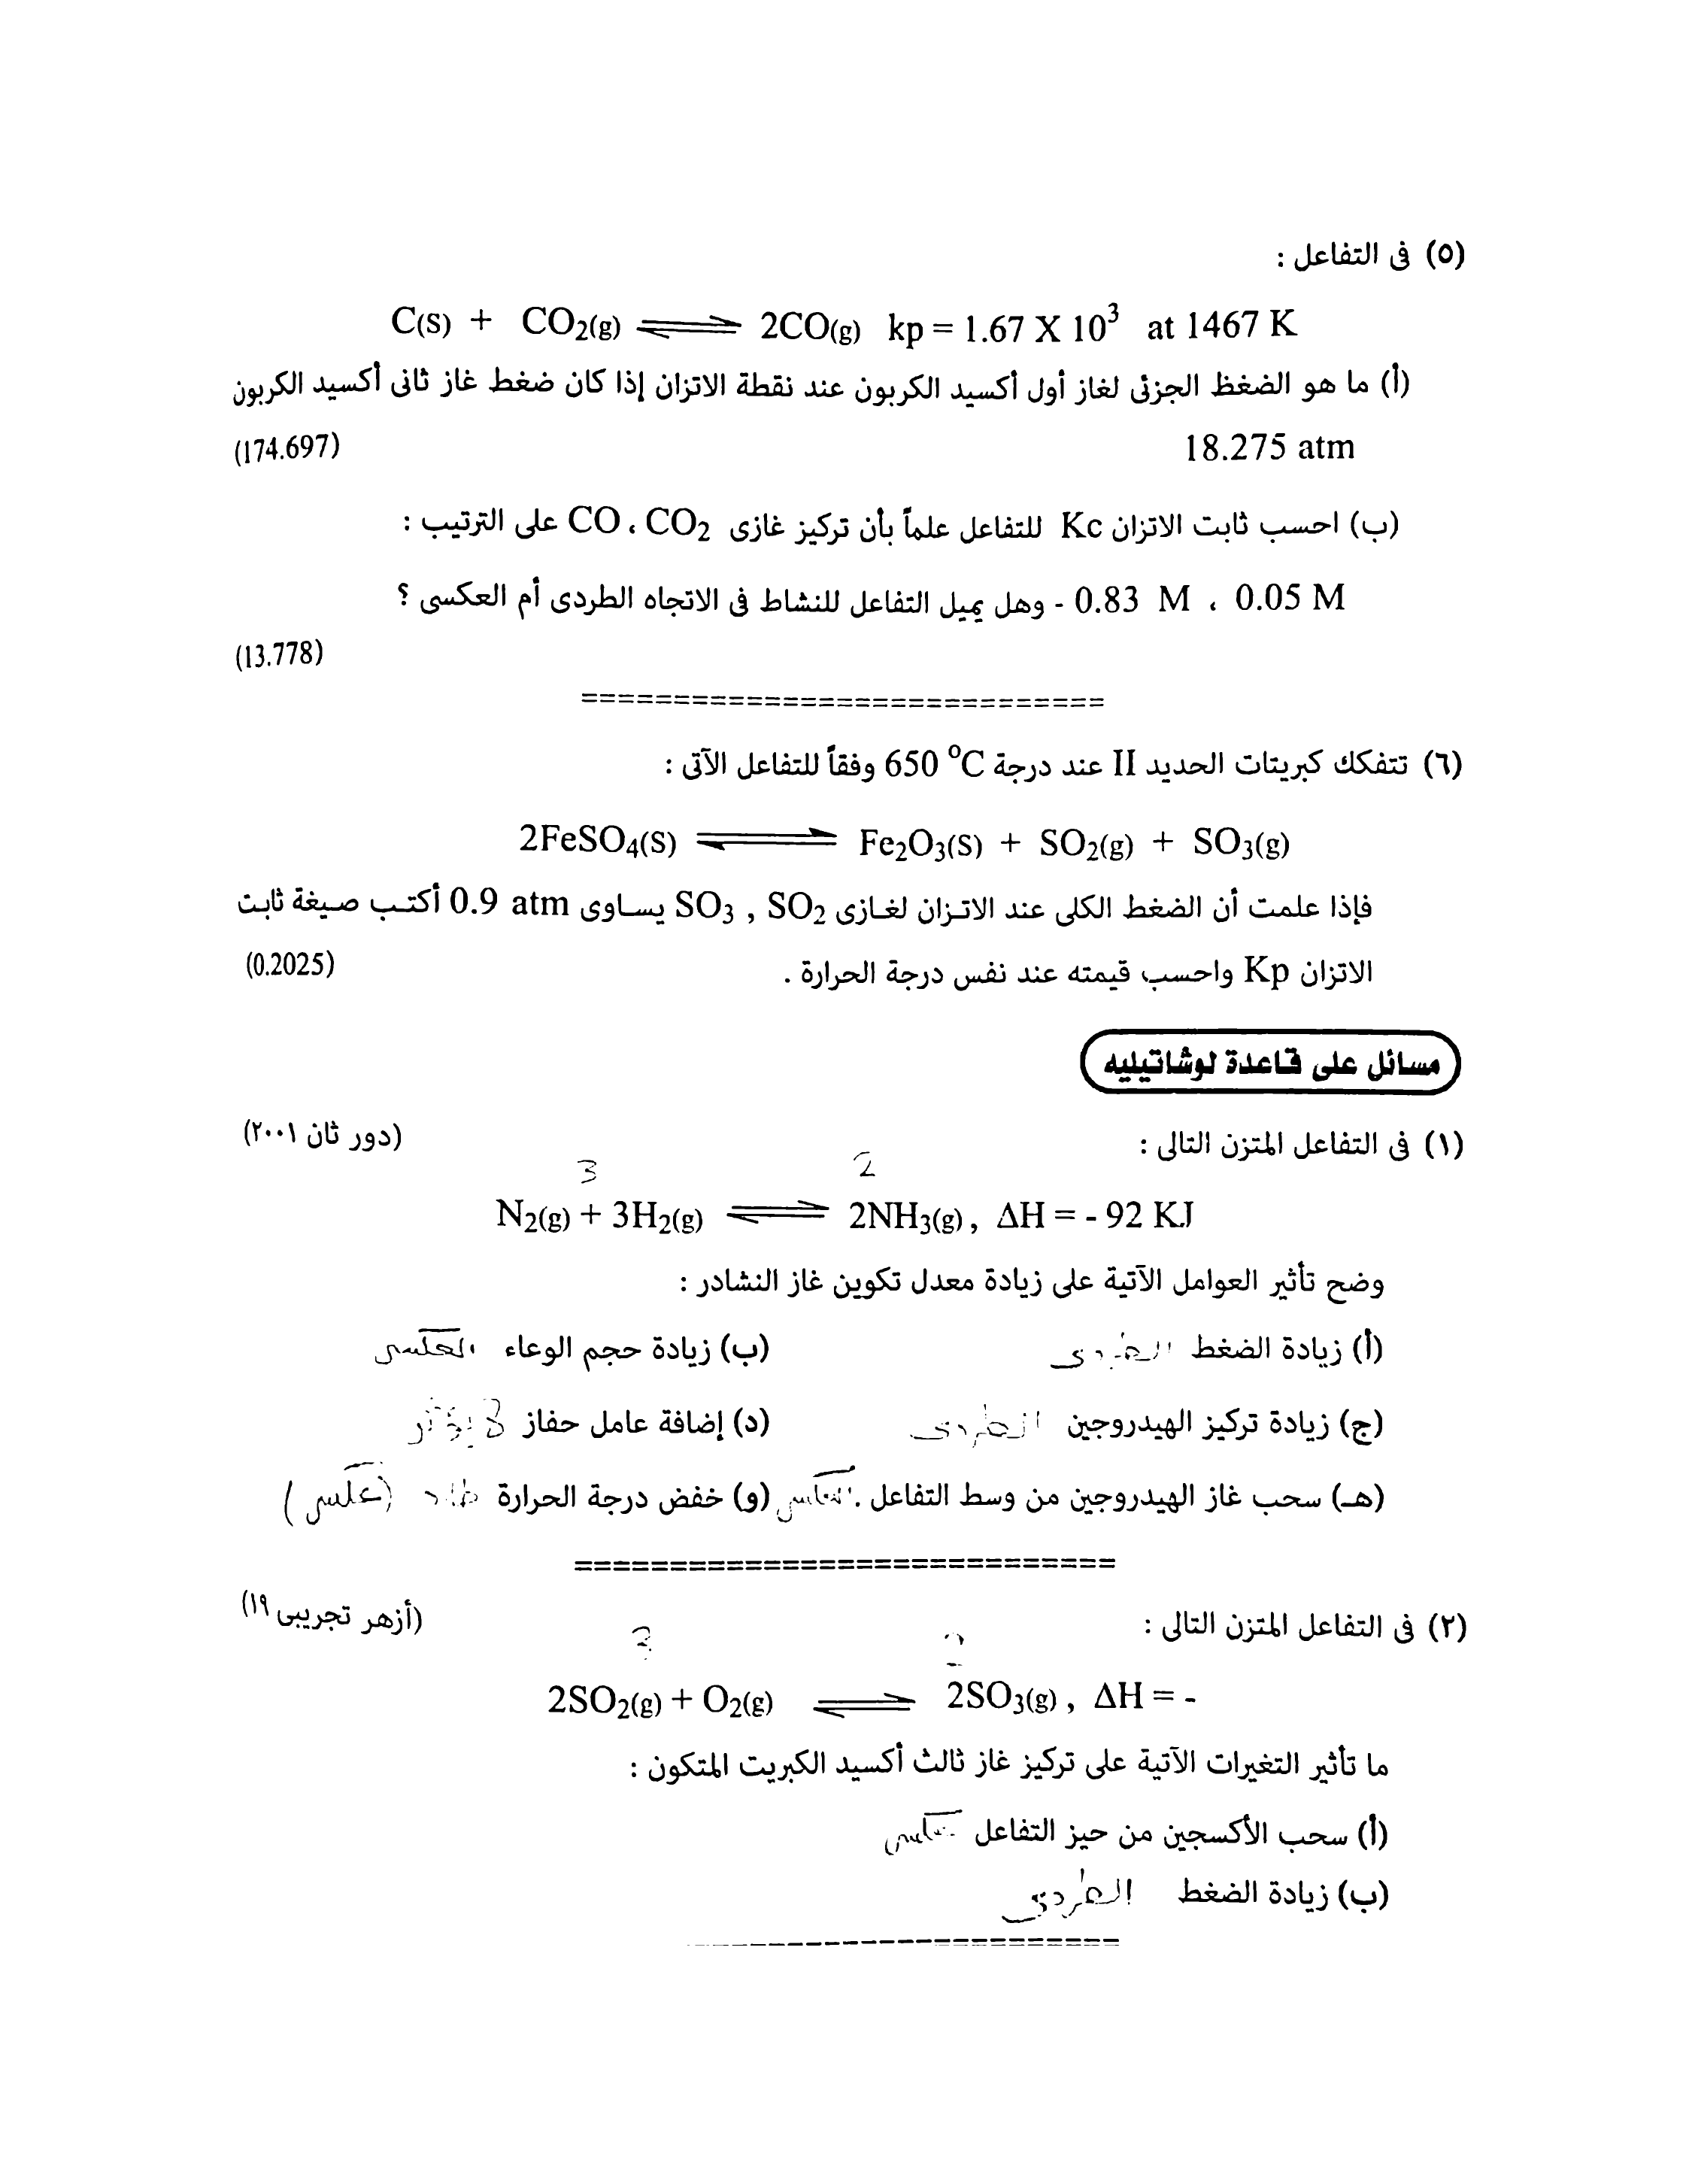 (٥) فى التفاعل :
C(S) + CO2(g) ⇌ 2CO(g) kp = 1.67 X 10³ at 1467 K
(أ) ما هو الضغظ الجزئى لغاز أول أكسيد الكربون عند نقطة الاتزان إذا كان ضغط غاز ثانى أكسيد الكربون
18.275 atm (174.697)
(ب) احسب ثابت الاتزان Kc للتفاعل علماً بأن تركيز غازى CO ، CO2 على الترتيب :
0.83 M ، 0.05 M - وهل يميل التفاعل للنشاط فى الاتجاه الطردى أم العكسى ؟
(13.778)
=============================
(٦) تتفكك كبريتات الحديد II عند درجة 650 °C وفقاً للتفاعل الآتى :
2FeSO4(S) ⇌ Fe2O3(S) + SO2(g) + SO3(g)
فإذا علمت أن الضغط الكلى عند الاتزان لغازى SO3 , SO2 يساوى 0.9 atm أكتب صيغة ثابت
الاتزان Kp واحسب قيمته عند نفس درجة الحرارة . (0.2025)
مسائل على قاعدة لوشاتيليه
(١) فى التفاعل المتزن التالى : (دور ثان ٢٠٠١)
3 2
N2(g) + 3H2(g) ⇌ 2NH3(g) , ΔH = - 92 KJ
وضح تأثير العوامل الآتية على زيادة معدل تكوين غاز النشادر :
(أ) زيادة الضغط الطردى (ب) زيادة حجم الوعاء العكسى
(ج) زيادة تركيز الهيدروجين الطردى (د) إضافة عامل حفاز لا يؤثر
(هـ) سحب غاز الهيدروجين من وسط التفاعل . العكسى (و) خفض درجة الحرارة طارد (عكسى)
=============================
(٢) فى التفاعل المتزن التالى : (أزهر تجريبى ١٩)
2SO2(g) + O2(g) ⇌ 2SO3(g) , ΔH = -
ما تأثير التغيرات الآتية على تركيز غاز ثالث أكسيد الكبريت المتكون :
(أ) سحب الأكسجين من حيز التفاعل عكسى
(ب) زيادة الضغط الطردى